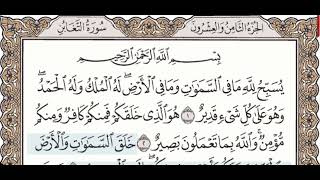 الجزء الثامن والعشرون سورة التغابن
بِسْمِ ٱللَّهِ ٱلرَّحْمَٰنِ ٱلرَّحِيمِ
يُسَبِّحُ لِلَّهِ مَا فِي ٱلسَّمَٰوَٰتِ وَمَا فِي ٱلْأَرْضِۖ لَهُ ٱلْمُلْكُ وَلَهُ ٱلْحَمْدُۖ
وَهُوَ عَلَىٰ كُلِّ شَىْءٍ قَدِيرٌ ١ هُوَ ٱلَّذِى خَلَقَكُمْ فَمِنكُمْ كَافِرٌ وَمِنكُم
مُّؤْمِنٌۚ وَٱللَّهُ بِمَا تَعْمَلُونَ بَصِيرٌ ٢ خَلَقَ ٱلسَّمَٰوَٰتِ وَٱلْأَرْضَ